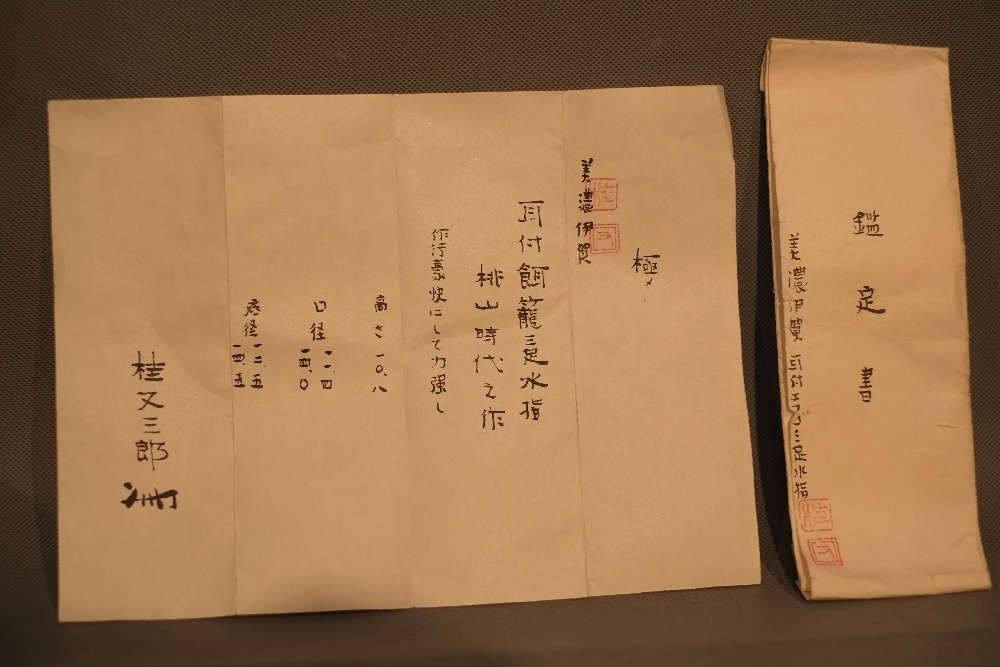 鑑定書
美濃伊賀 耳付エフゴ三足水指
極メ
美濃伊賀
耳付餌籠三足水指
桃山時代之作
作行豪快にして力強し
高さ 一〇、八
口径 一一、四
一四、〇
底径 一二、五
一四、五
桂又三郎